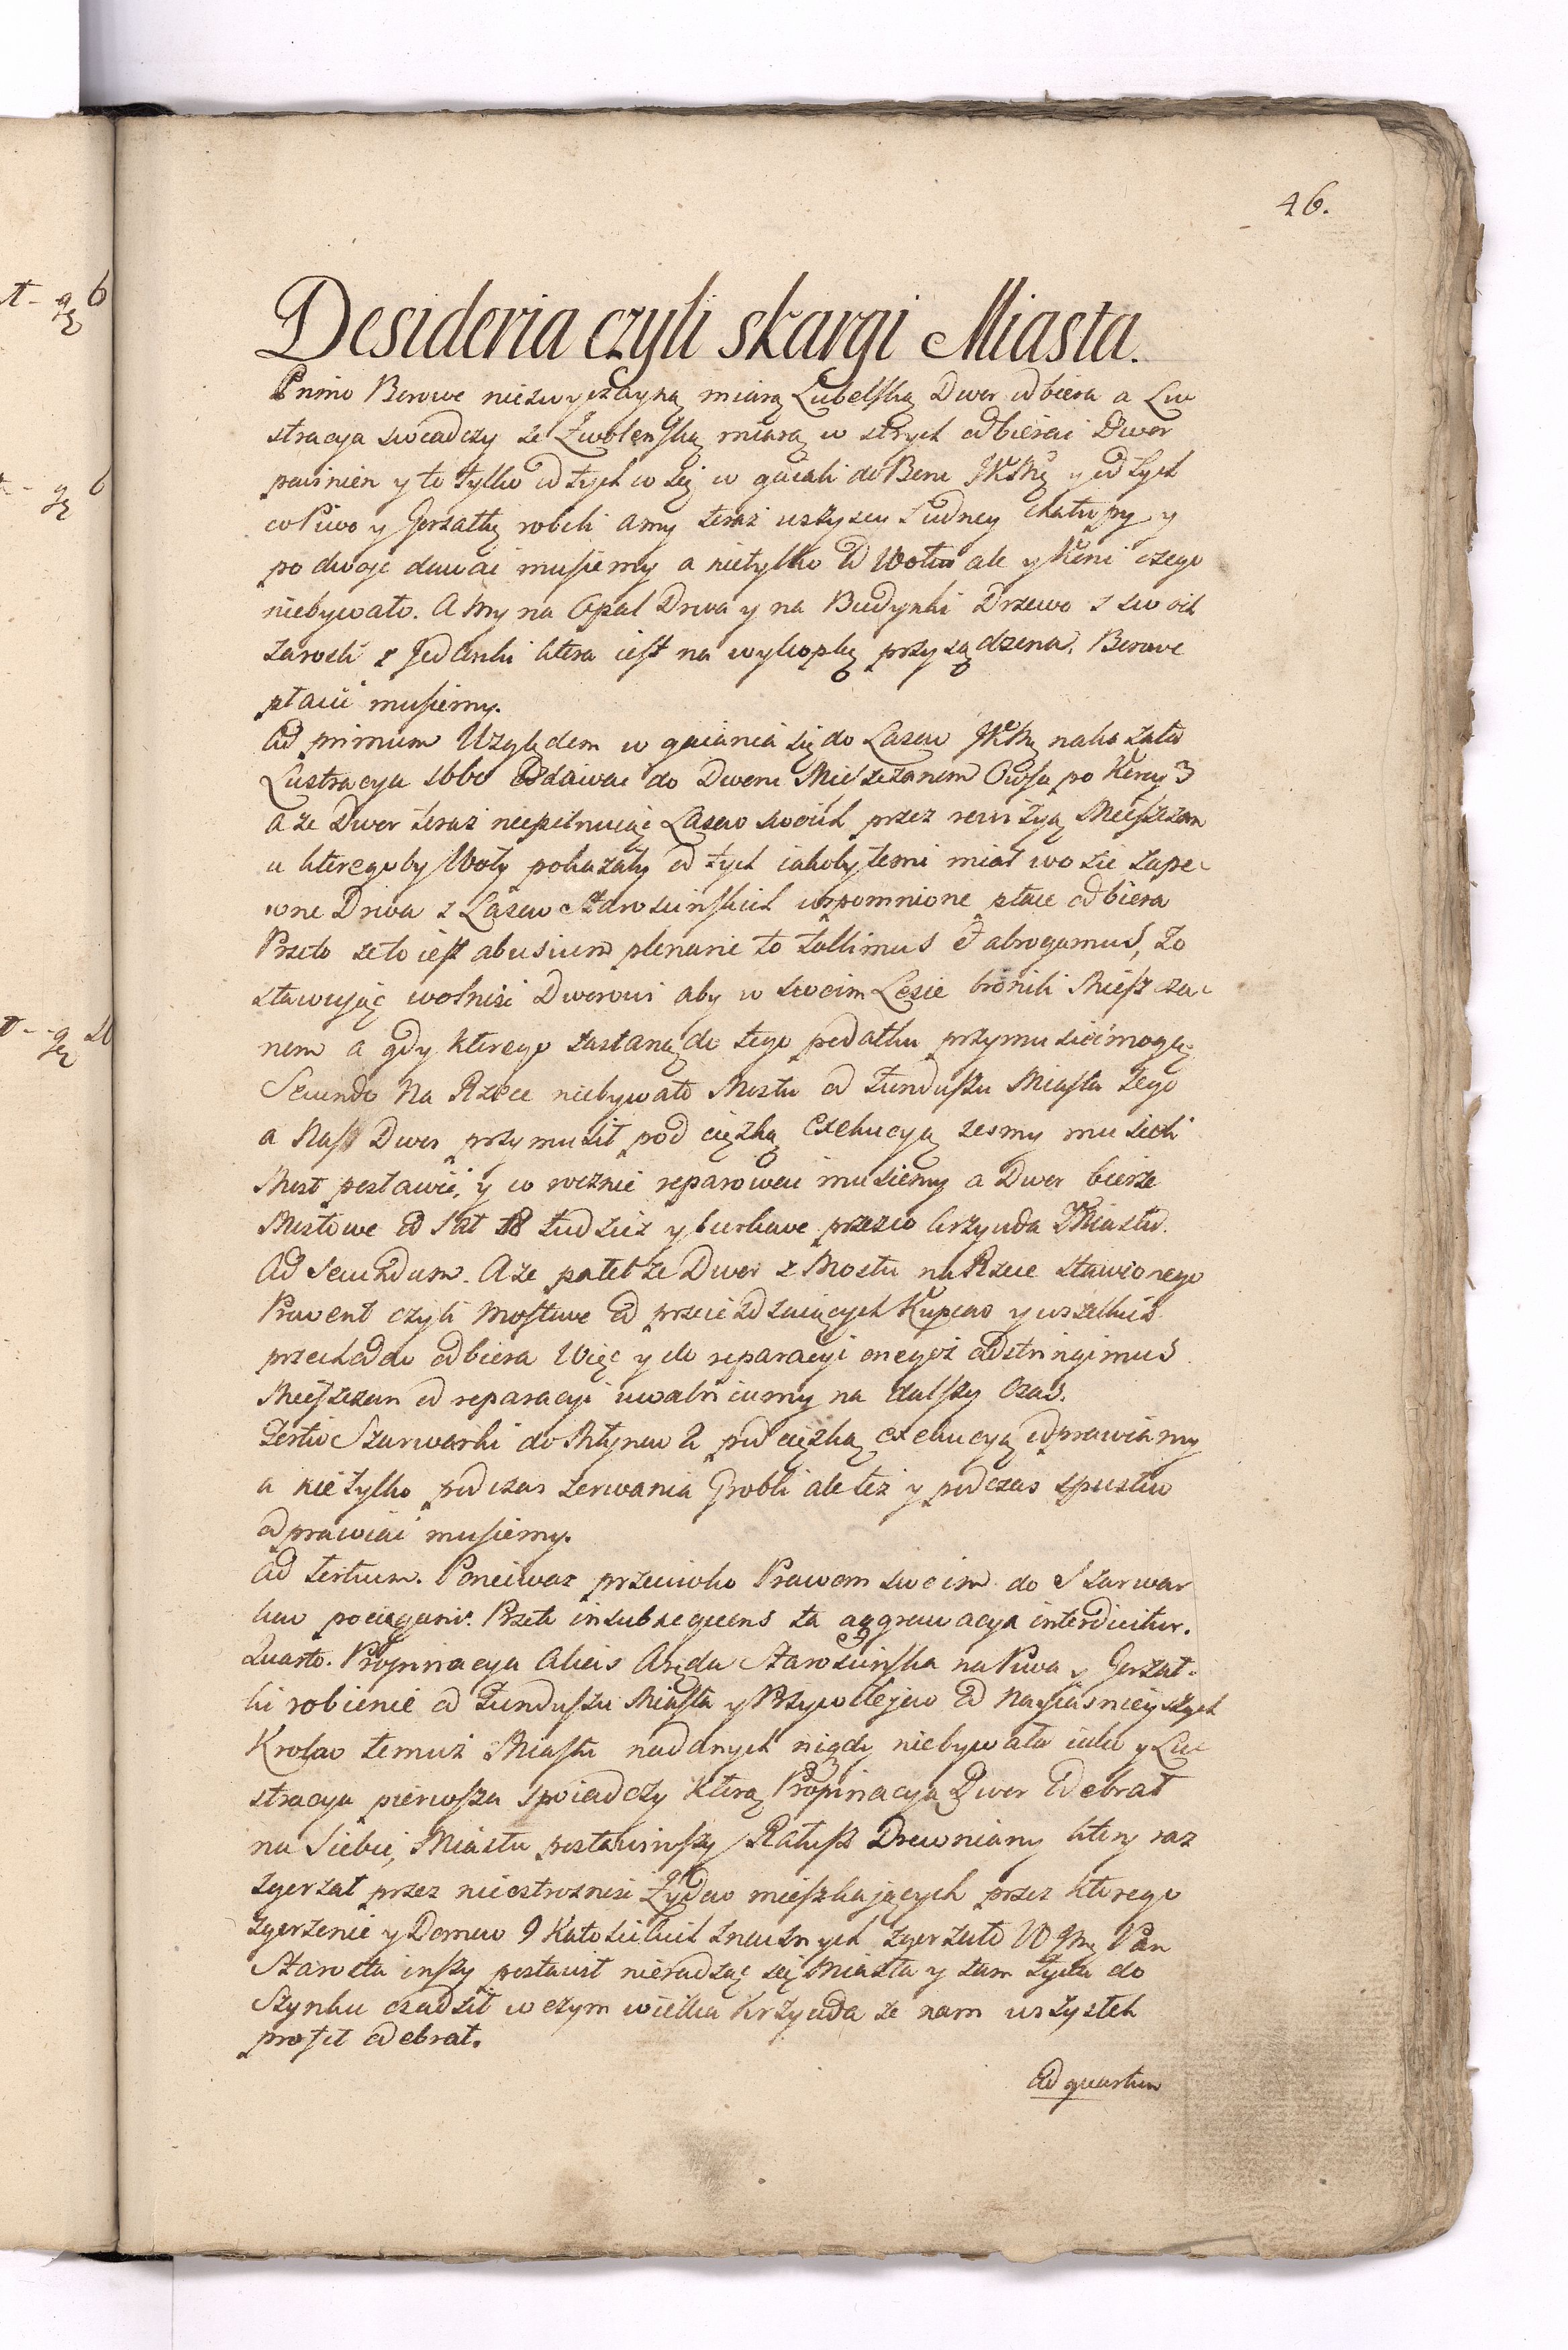 46.
Desideria czyli skargi Miasta.
Primo Borowe niezwyczayną miarą Lubelską Dwor odbiera a Lu
stracya swiadczy ze Zwolenską miarą w strych odbierać Dwor
powinien y to tylko od tych co się w gaiali do Boru JKMę y od tych
co Piwo y Gorzałkę robili amy teraz wszyscy Ludney chałupy y
po dwoje dawać musiemy a nietylko od Wołu ale y Koni czego
niebywało. A My na Opał Drwa y na Budynki Drzewo z swoich
zarosli z Jedlinki ktora iest na wykopkę przysądzona. Borowe
płacić musiemy.
Ad primum Względem w gaiania się do Lasow JKMę nakazała
Lustracya 1660 Oddawać do Dworu Mieszczanom Owsa po Korcy 3
a ze Dwor teraz niepilnuiąc Lasow swoich przez rewizyą Mieszczan
u ktoregoby Woły pokazały od tych iakobytemi miał wozić zape
wne Drwa z Lasow Starościńskich wspomnione płace odbiera
Przeto zeto iest abusium plenarie to tollimus et abrogamus, zo
stawując wolność Dworowi aby w swoim Lesie bronili Miesz cza
nom a gdy ktorego zastaną do tego podatku przymusicimogą.
Secundo Na Rzece niebywało Mostu od Funduszu Miasta tego
a Nass Dwor przymusił pod ciężką Exekucyą zesmy musieli
Most postawić, y co rocznie reparować musiemy a Dwor bierze
Mostowe od lat 18 tudziez y burkowe przezco krzywda Miastu.
Ad Secundum. A ze patet ze Dwor z Mostu na Rzece stawionego
Prowent czyli Mostowe od przeieżdzaiących Kupcow y wszelkich
przechodow odbiera Więc y do reparacyi onegoż adstringimus
Mieszczan od reparacyi uwalniamy na dalszy Czas.
Tertio Szarwarki do Młynow 2 pod ciężką exekucyą odprawiamy
a nie tylko podczas zerwania Grobli ale też y podczas spustu
odprawiać musiemy.
Ad tertium. Poniewaz przeciwko Prawom swoim do Szarwar
kow pociągani. Przeto insubsequens ta aggrawacya interdicitur.
Quarto. Propinacya Alias Aręda Starościnska na Piwa y Gorzał-
ki robienie od Funduszu Miasta y Przywilejow od Nayiasnieyszych
Krolow temuż Miastu nadanych nigdy niebywała iako y Lu
stracya pierwsza swiadczy ktorą Propinacyą Dwor odebrał
na Siebie, Miastu postawiwszy Ratusz Drewniany ktory raz
zgorzał przez nieostroznosć Żydow mieszkających przez ktorego
zgorzenie y Domow 9 Katolickich znacznych zgorzało WJMę Pan
Starosta inszy postawił nieradząc się Miasta y tam Żyda do
Szynku osadził w czym wielka Krzywda ze nam wszystek
profit odebrał.
Ad quartum